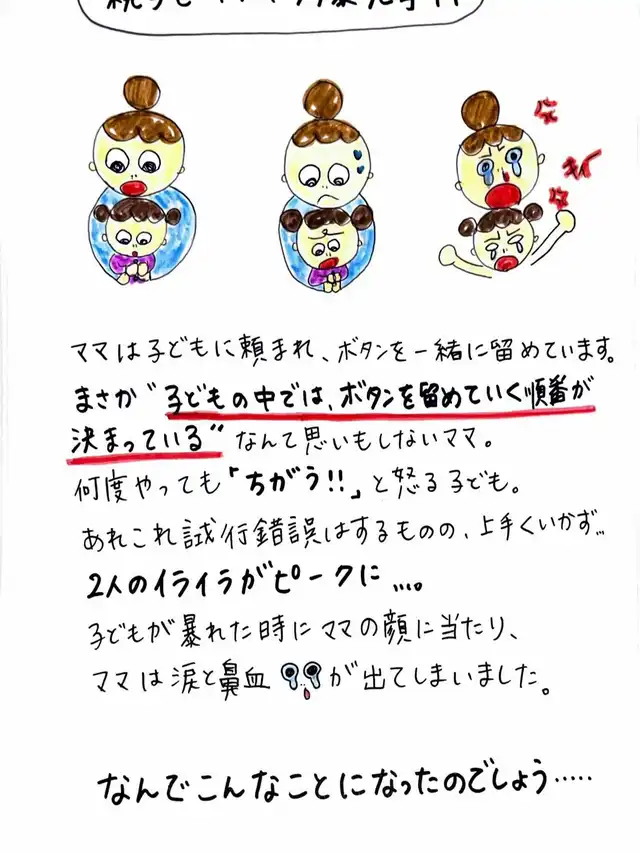 キー
ママは子どもに頼まれ、ボタンを一緒に留めています。
まさか"子どもの中では、ボタンを留めていく順番が
決まっている"なんて思いもしないママ。
何度やっても「ちがう!!」と怒る子ども。
あれこれ試行錯誤はするものの、上手くいかず…
2人のイライラがピークに….。
子どもが暴れた時にママの顔に当たり、
ママは涙と鼻血が出てしまいました。
なんでこんなことになったのでしょう‥‥‥